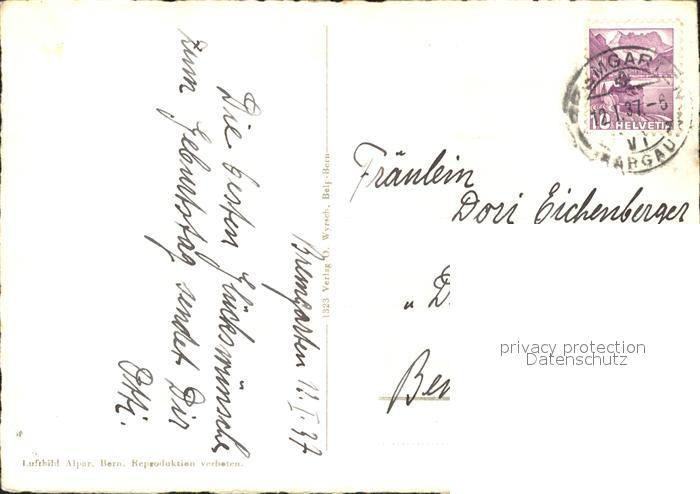 Bremgarten 12.I.37
Die besten Glückswünsche
zum Geburtstag sendet Dir
Otti.
1323 Verlag O. Wyrsch, Belp-Bern
Luftbild Alpar, Bern. Reproduktion verboten.
BREMGARTEN
12.I.37-6
VI
(AARGAU)
10 HELVETIA
Fräulein
Dori Eichenberger
privacy protection
Datenschutz